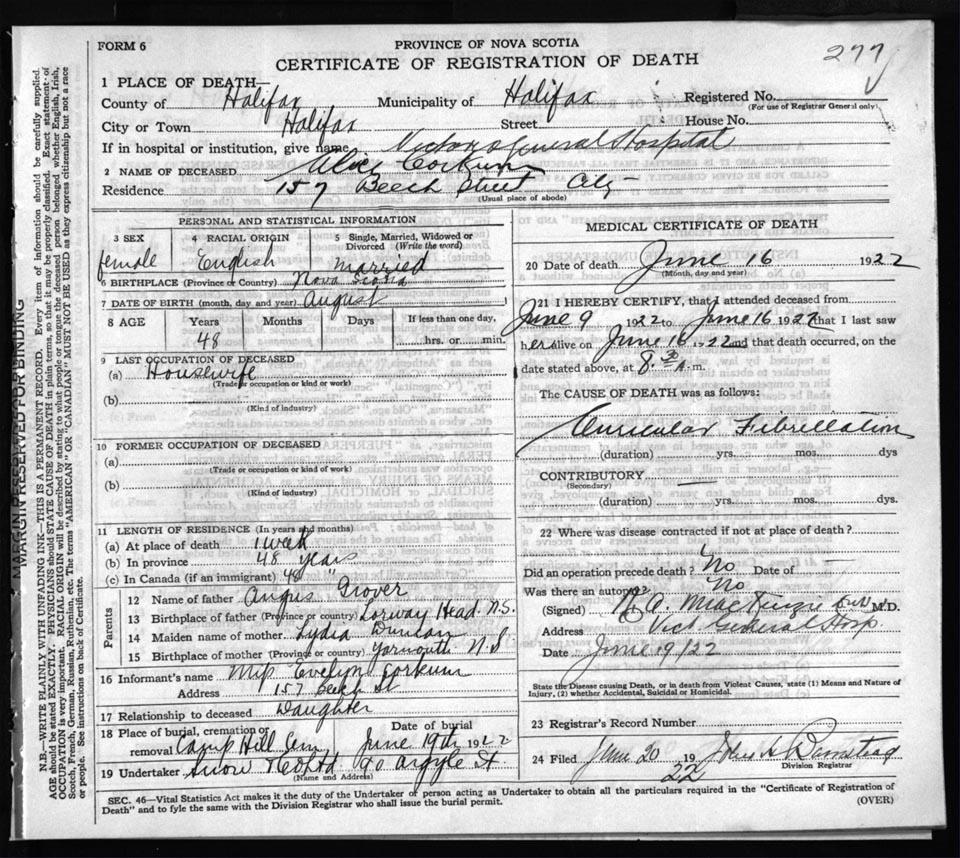 FORM 6
PROVINCE OF NOVA SCOTIA
277
CERTIFICATE OF REGISTRATION OF DEATH
1 PLACE OF DEATH—
County of Halifax Municipality of Halifax Registered No.
(For use of Registrar General only)
City or Town Halifax Street House No.
If in hospital or institution, give name Victoria General Hospital
2 NAME OF DECEASED Alice Corkum
Residence 157 Beech Street City
(Usual place of abode)
PERSONAL AND STATISTICAL INFORMATION
3 SEX 4 RACIAL ORIGIN 5 Single, Married, Widowed or Divorced (Write the word)
female English married
6 BIRTHPLACE (Province or Country) Nova Scotia
7 DATE OF BIRTH (month, day and year) August
8 AGE Years Months Days If less than one day,
48 hrs. or min.
9 LAST OCCUPATION OF DECEASED
(a) Housewife
(Trade or occupation or kind of work)
(b)
(Kind of industry)
10 FORMER OCCUPATION OF DECEASED
(a)
(Trade or occupation or kind of work)
(b)
(Kind of industry)
11 LENGTH OF RESIDENCE (In years and months)
(a) At place of death 1 week
(b) In province 48 years
(c) In Canada (if an immigrant) 48 "
Parents
12 Name of father Angus Grover
13 Birthplace of father (Province or country) Head N.S.
14 Maiden name of mother Lydia Duncan
15 Birthplace of mother (Province or country) Yarmouth N.S
16 Informant's name Miss Evelyn Corkum
Address 157 Beech St
17 Relationship to deceased Daughter
18 Place of burial, cremation or removal Camp Hill Cem Date of burial June 19th 1922
19 Undertaker Snow & Co Ltd 90 Argyle St
(Name and Address)
MEDICAL CERTIFICATE OF DEATH
20 Date of death June 16 1922
(Month, day and year)
21 I HEREBY CERTIFY, that I attended deceased from
June 9 1922 to June 16 1922 that I last saw
her alive on June 16 1922 and that death occurred, on the
date stated above, at 8.30 A.m.
The CAUSE OF DEATH was as follows:
Auricular Fibrillation
(duration) yrs. mos. dys
CONTRIBUTORY —
(Secondary)
(duration) yrs. mos. dys.
22 Where was disease contracted if not at place of death?
Did an operation precede death? No Date of —
Was there an autopsy? No
(Signed) A. MacKenzie M.D.
Address Vict General Hosp.
Date June 19/22
State the Disease causing Death, or in death from Violent Causes, state (1) Means and Nature of Injury, (2) whether Accidental, Suicidal or Homicidal.
23 Registrar's Record Number
24 Filed June 20 19 22 John A Barnstead
Division Registrar
SEC. 46—Vital Statistics Act makes it the duty of the Undertaker or person acting as Undertaker to obtain all the particulars required in the "Certificate of Registration of
Death" and to fyle the same with the Division Registrar who shall issue the burial permit.
(OVER)
MARGIN RESERVED FOR BINDING
N.B.—WRITE PLAINLY WITH UNFADING INK—THIS IS A PERMANENT RECORD. Every item of information should be carefully supplied.
AGE should be stated EXACTLY. PHYSICIANS should STATE CAUSE OF DEATH in plain terms, so that it may be properly classified. Exact statement of
OCCUPATION is very important. RACIAL ORIGIN will be described by stating to what people or tongue the deceased person belonged, whether English, Irish,
Scotch, French, German, Russian, Ruthenian, etc. The terms "AMERICAN" OR "CANADIAN" MUST NOT BE USED as they express citizenship but not a race
or people. See instructions on back of Certificate.